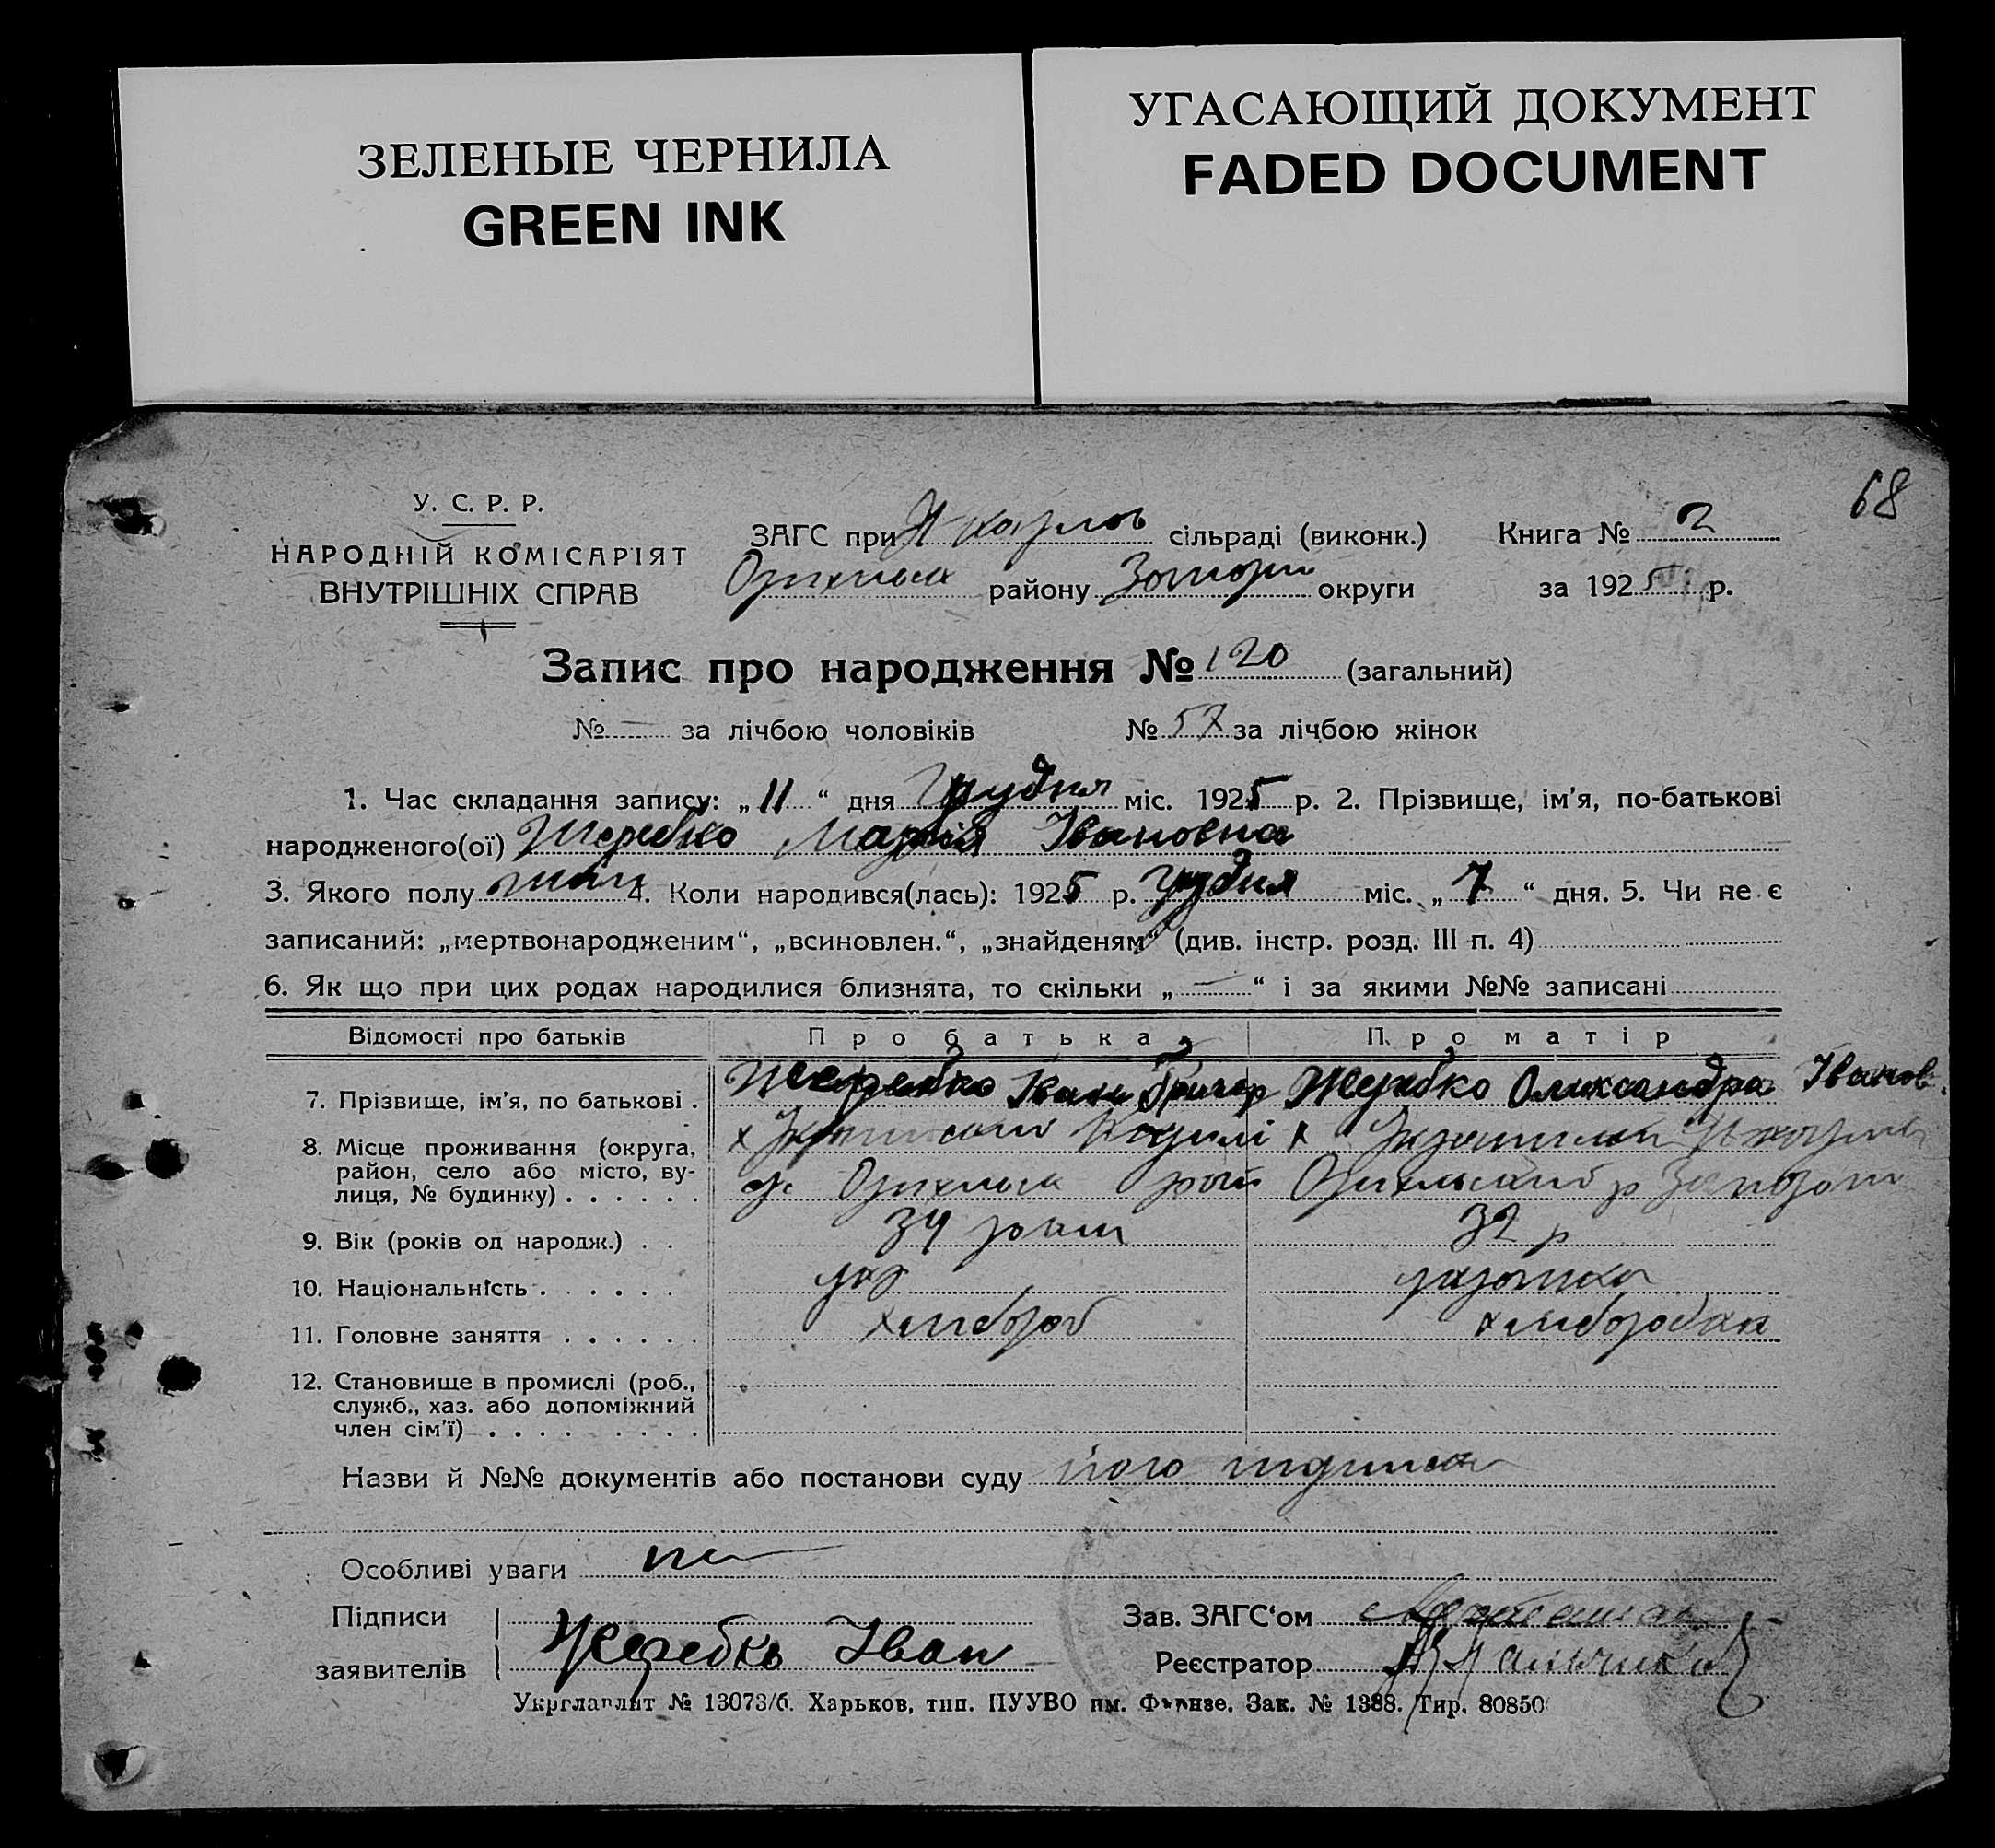 ЗЕЛЕНЫЕ ЧЕРНИЛА
GREEN INK
УГАСАЮЩИЙ ДОКУМЕНТ
FADED DOCUMENT
68
У. С. Р. Р.
НАРОДНІЙ КОМІСАРІЯТ
ВНУТРІШНІХ СПРАВ
ЗАГС при Н карлов сільраді (виконк.) Книга № 2
району округи за 1925 р.
Запис про народження № 120 (загальний)
№ — за лічбою чоловіків № 57 за лічбою жінок
1. Час складання запису: „11“ дня Грудня міс. 1925 р. 2. Прізвище, ім'я, по-батькові
народженого(ої) Жеребко Марія Івановна
3. Якого полу 4. Коли народився(лась): 1925 р. грудня міс. „7“ дня. 5. Чи не є
записаний: „мертвонародженим“, „всиновлен.“, „знайденям“ (див. інстр. розд. III п. 4)
6. Як що при цих родах народилися близнята, то скільки „—“ і за якими №№ записані
Відомості про батьків Про батька Про матір
7. Прізвище, ім'я, по батькові . Жеребко Іван Григор Жеребко Олександра Іванов
8. Місце проживання (округа,
район, село або місто, ву-
лиця, № будинку) . . . . . .
9. Вік (років од народж.) . . 34 роки 32 р
10. Національність . . . . . . укр українка
11. Головне заняття . . . . . . хлібороб
12. Становище в промислі (роб.,
служб., хаз. або допоміжний
член сім'ї) . . . . . . . . .
Назви й №№ документів або постанови суду його підписка
Особливі уваги
Підписи Зав. ЗАГС'ом
заявителів Жеребко Іван Реєстратор
Укрглавліт № 13073/б. Харьков, тип. ПУУВО им. Фрунзе. Зак. № 1388. Тир. 80850